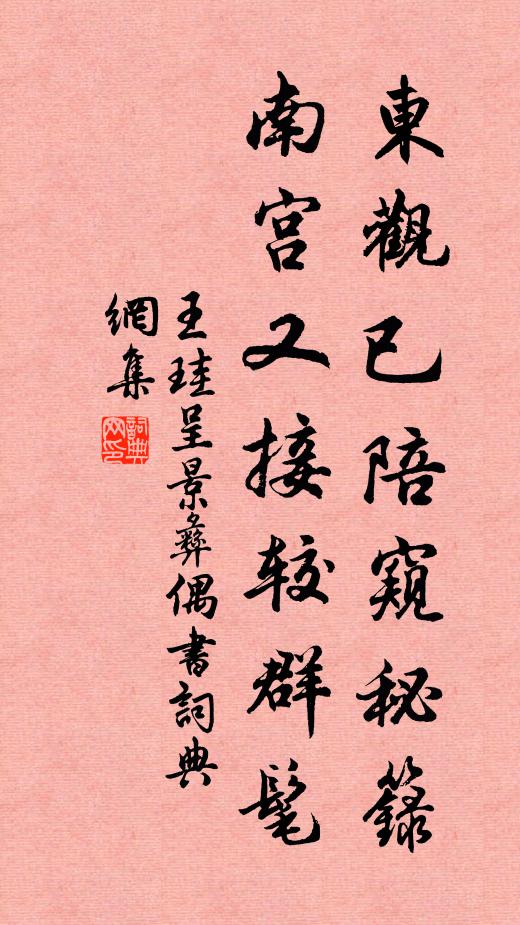 東觀已陪窺秘籙
南宮又接較群髦
王珪呈景彝偶書詞典
網集
詞典
网印